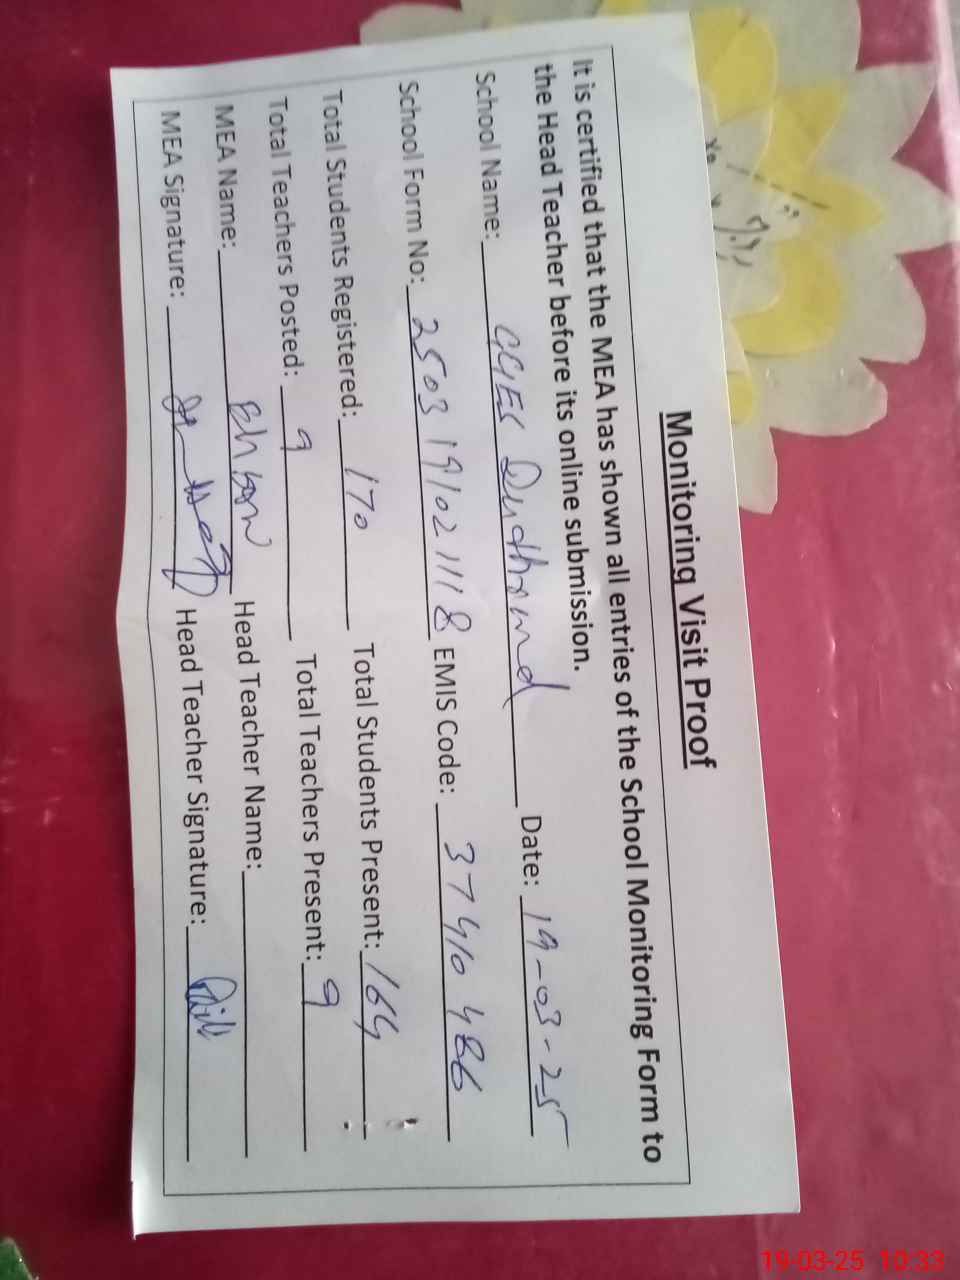 Monitoring Visit Proof
It is certified that the MEA has shown all entries of the School Monitoring Form to
the Head Teacher before its online submission.
School Name: GGES Duthrand Date: 19-03-25
School Form No: 2503 19102 1118 EMIS Code: 37410 486
Total Students Registered: 170 Total Students Present: 164
Total Teachers Posted: 9 Total Teachers Present: 9
MEA Name: Ehsan Head Teacher Name:
MEA Signature: Head Teacher Signature:
19-03-25 10:33